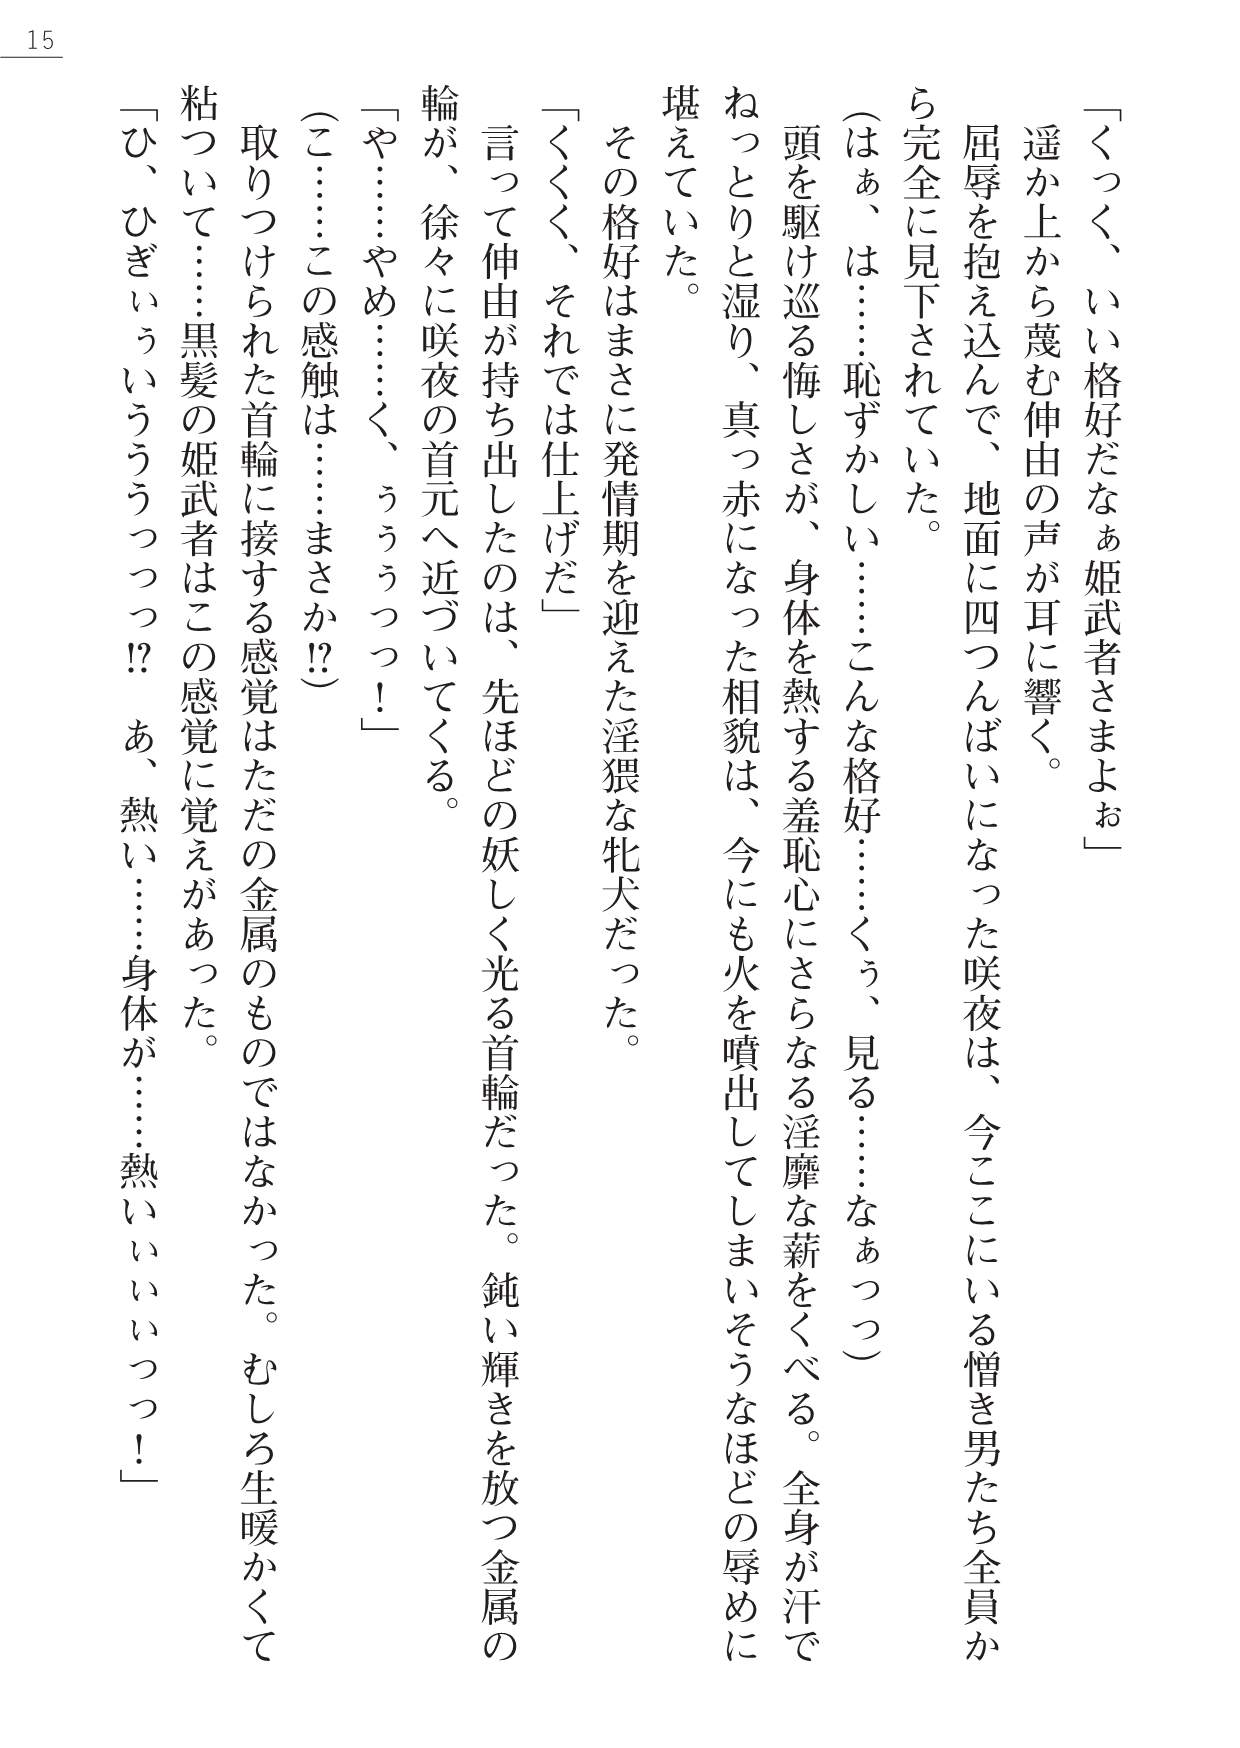 15
「くっく、いい格好だなぁ姫武者さまよぉ」
遥か上から蔑む伸由の声が耳に響く。
屈辱を抱え込んで、地面に四つんばいになった咲夜は、今ここにいる憎き男たち全員か
ら完全に見下されていた。
(はぁ、は……恥ずかしい……こんな格好……くぅ、見る……なぁっつ)
頭を駆け巡る悔しさが、身体を熱する羞恥心にさらなる淫靡な薪をくべる。全身が汗で
ねっとりと湿り、真っ赤になった相貌は、今にも火を噴出してしまいそうなほどの辱めに
堪えていた。
その格好はまさに発情期を迎えた淫猥な牝犬だった。
「くくく、それでは仕上げだ」
言って伸由が持ち出したのは、先ほどの妖しく光る首輪だった。鈍い輝きを放つ金属の
輪が、徐々に咲夜の首元へ近づいてくる。
「や……やめ……く、ぅぅぅっっ！」
(こ……この感触は……まさか!?)
取りつけられた首輪に接する感覚はただの金属のものではなかった。むしろ生暖かくて
粘ついて……黒髪の姫武者はこの感覚に覚えがあった。
「ひ、ひぎぃぅいうううっっっ!?　あ、熱い……身体が……熱いぃぃぃっっ！」